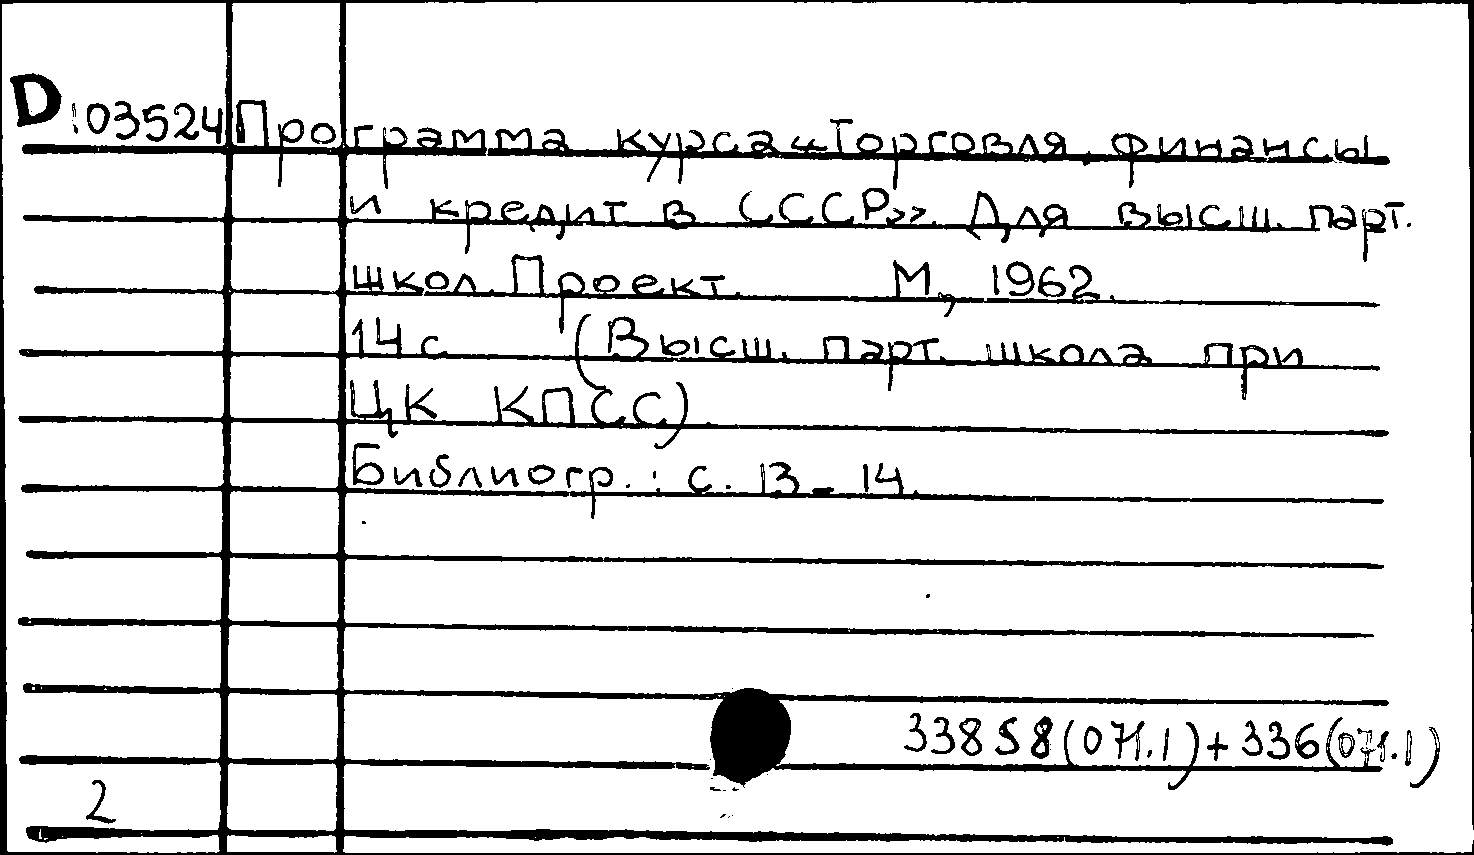 D 103524 Программа курса «Торговля, финансы
и кредит в СССР». Для высш. парт.
школ. Проект. М., 1962.
14 с. (Высш. парт. школа при
ЦК КПСС)
Библиогр.: с. 13-14.
338 S 8(071.1)+336(071.1)
2